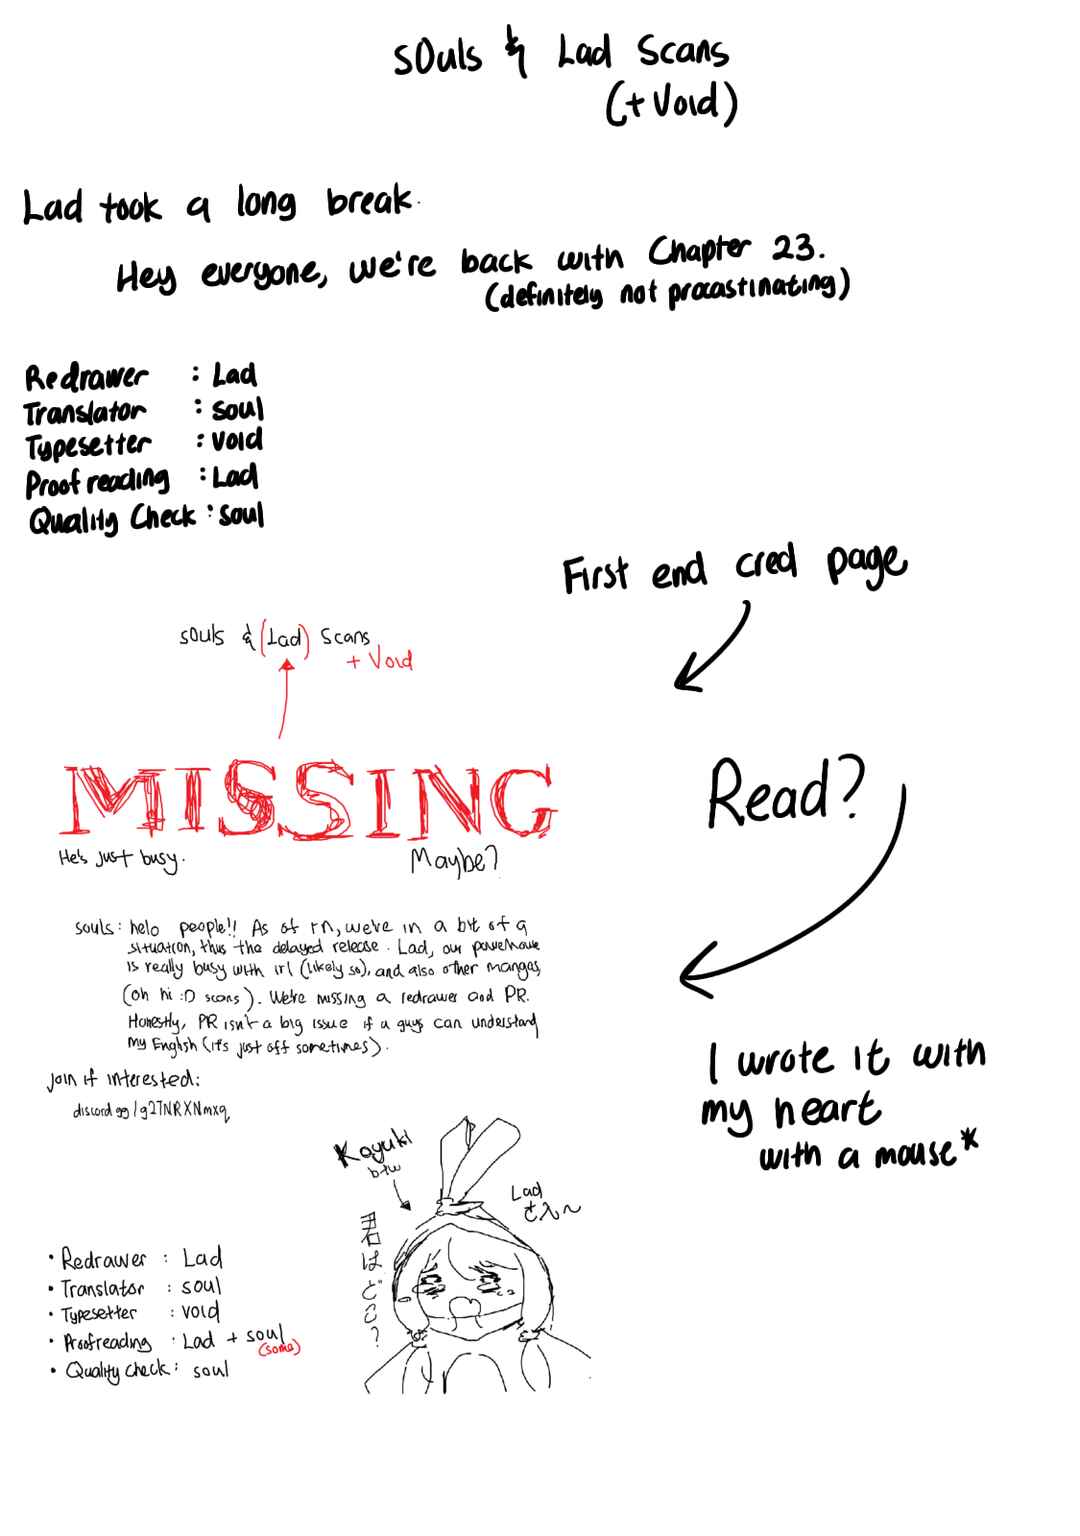 sOuls & Lad Scans
(+ Void)
Lad took a long break.
Hey everyone, we're back with Chapter 23.
(definitely not procastinating)
Redrawer : Lad
Translator : soul
Typesetter : void
Proof reading : Lad
Quality Check : soul
First end cred page
sOuls & (Lad) Scans
+ Void
MISSING
He's just busy.
Maybe?
Read?
souls: helo people!! As of rn, we're in a bit of a
situation, thus the delayed release. Lad, our powerhouse
is really busy with irl (likely so), and also other mangas,
(oh hi :D scans). We're missing a redrawer and PR.
Honestly, PR isn't a big issue if u guys can understand
my English (it's just off sometimes).
Join if interested:
discord gg/g27NRXNmxq
I wrote it with
my heart
with a mouse*
Koyuki
btw
Lad
さん～
君はどこ?
• Redrawer : Lad
• Translator : soul
• Typesetter : void
• Proofreading : Lad + soul
(some)
• Quality check : soul